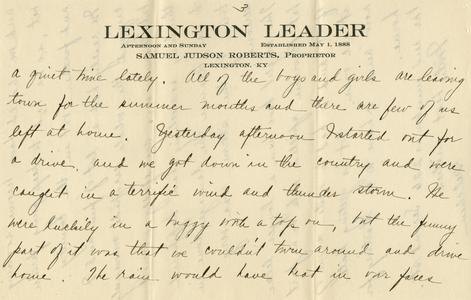 3
LEXINGTON LEADER
AFTERNOON AND SUNDAY ESTABLISHED MAY 1, 1888
SAMUEL JUDSON ROBERTS, PROPRIETOR
LEXINGTON, KY
a quiet time lately. All of the boys and girls are leaving
town for the summer months and there are few of us
left at home. Yesterday afternoon I started out for
a drive, and we got down in the country and were
caught in a terrific wind and thunder storm. We
were luckily in a buggy with a top on, but the funny
part of it was that we couldn't turn around and drive
home. The rain would have beat in our faces